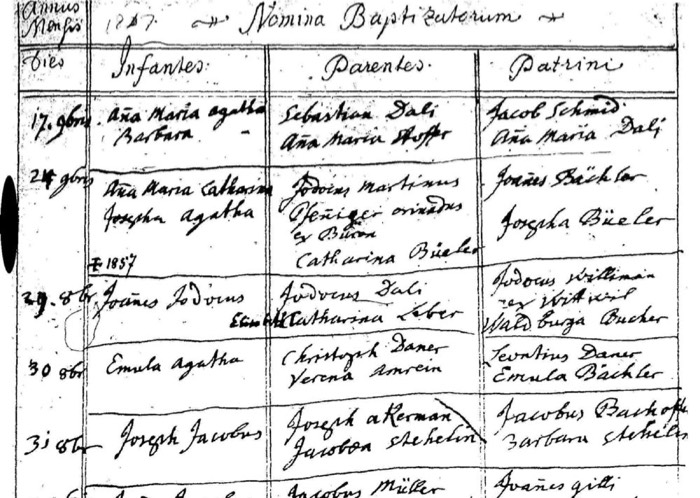 Annus
Mensis
1807. Nomina Baptizatorum
Dies
Infantes.
Parentes.
Patrini
17. 9bris
Aña Maria agatha
Barbara
Sebastian Dali
Aña Maria Hoffer
Jacob Schmid
Aña Maria Dali
24 9bris
Aña Maria Catharina
Josepha Agatha
‡ 1857
Jodocus Martinus
Pfeñiger oriundus
ex Büron
Catharina Büeler
Joañes Bächler
Josepha Büeler
29. 8br
Joañes Jodocus
Jodocus Dali
Catharina Leber
Jodocus Williman
ex Wittwil
Waldburga Bucher
30 8br
Emula agatha
Christoph Daner
Verena Amrein
Leontius Daner
Emula Bächler
31 8br
Joseph Jacobus
Joseph akerman
Jacobea Stehelin
Jacobus
Barbara
Jacobus Müller
Joañes gilli